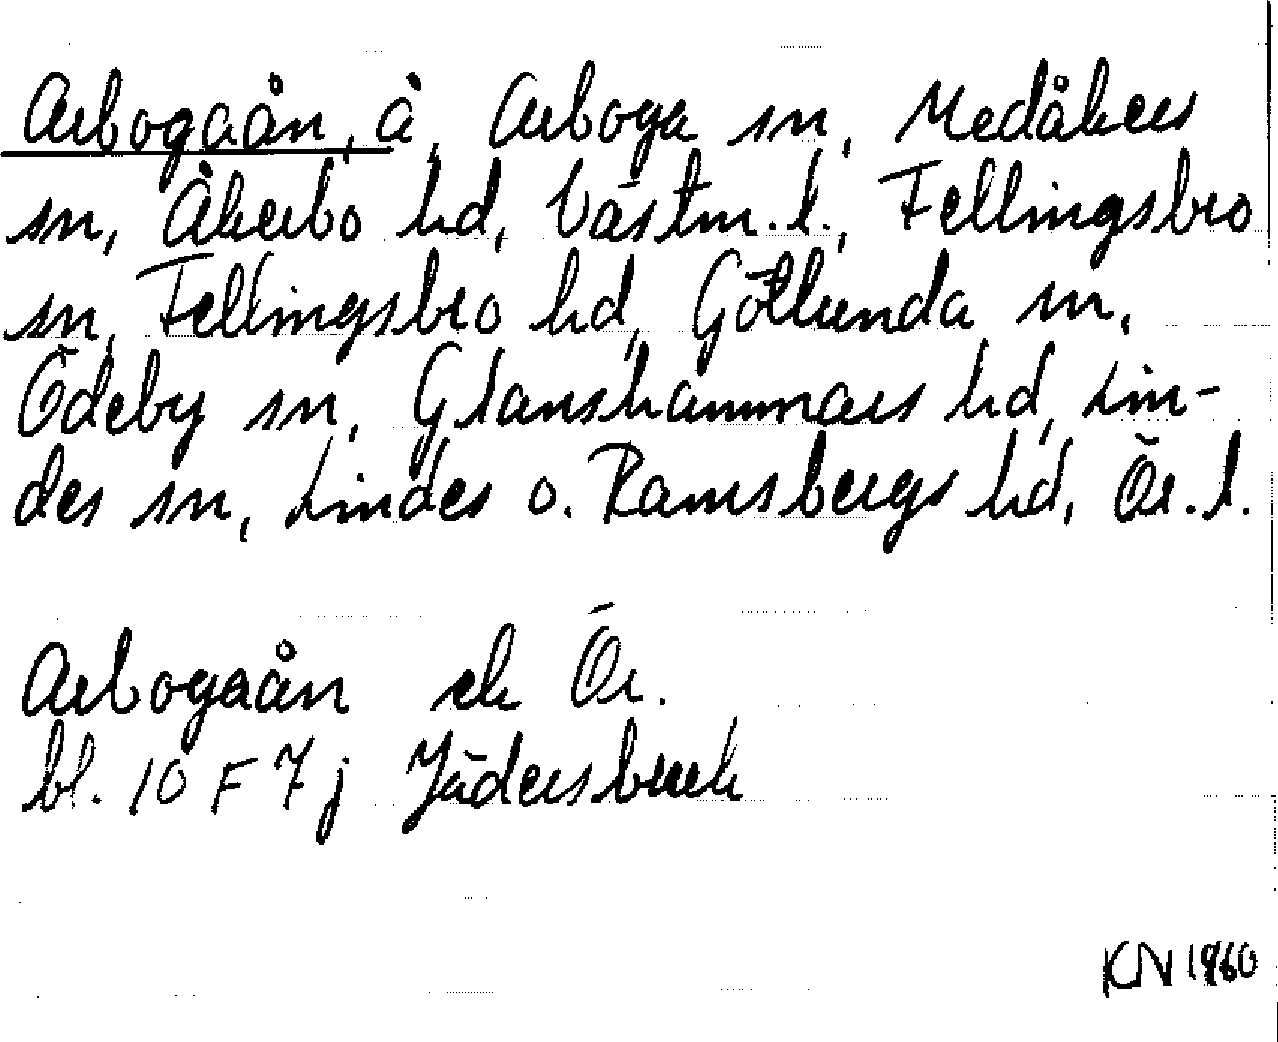 Arbogaån, å, Arboga sn, Medåkers
sn, Åkerbo hd, Västm. l., Fellingsbro
sn, Fellingsbro hd, Götlunda sn,
Ödeby sn, Glanshammars hd, Lin-
des sn, Lindes o. Ramsbergs hd, Ör. l.
Arbogaån ek Ör.
bl. 10 F 7j Jädersbruk
KN 1960